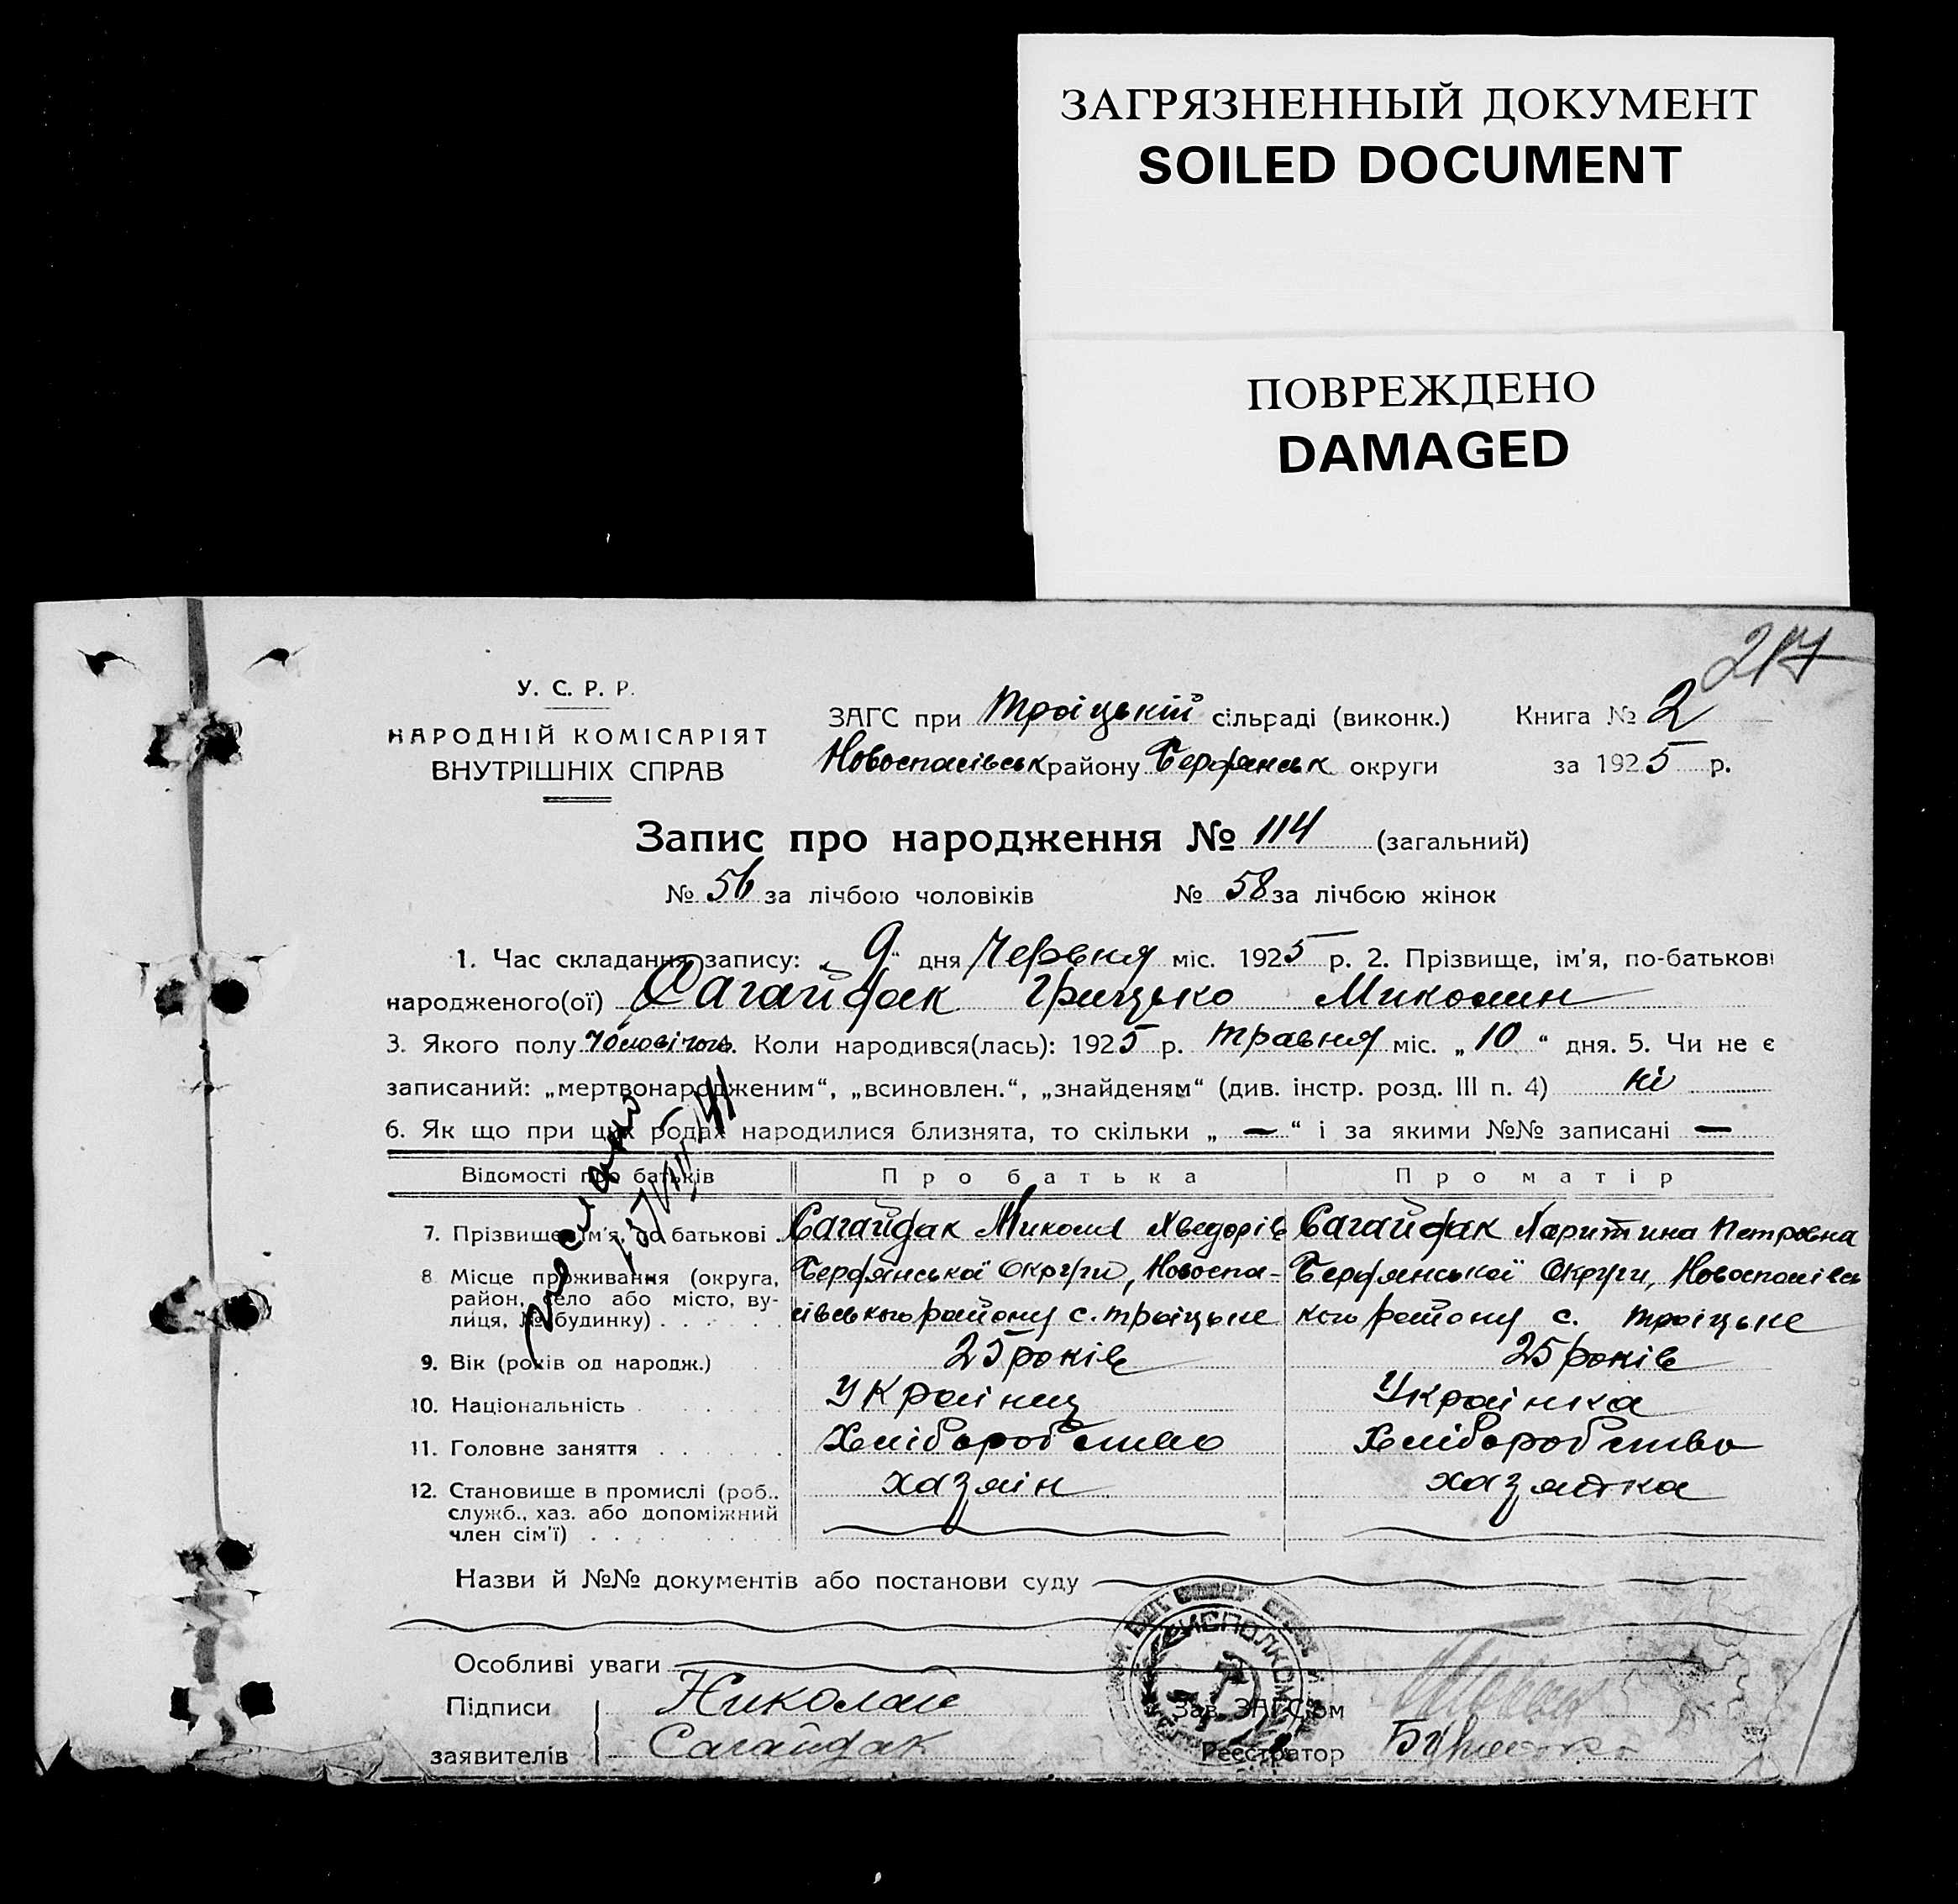 ЗАГРЯЗНЕННЫЙ ДОКУМЕНТ
SOILED DOCUMENT
ПОВРЕЖДЕНО
DAMAGED
217
У. С. Р. Р.
НАРОДНІЙ КОМІСАРІЯТ
ВНУТРІШНІХ СПРАВ
ЗАГС при Троіцькій сільраді (виконк.) Книга № 2
Новоспасівськ району Бердянськ округи за 1925 р.
Запис про народження № 114 (загальний)
№ 56 за лічбою чоловіків № 58 за лічбою жінок
1. Час складання запису: „ 9 “ дня Червня міс. 1925 р. 2. Прізвище, ім'я, по-батькові
народженого(ої) Сагайдак Грицько Миколин
3. Якого полу чоловічого. Коли народився(лась): 1925 р. травня міс. „ 10 “ дня. 5. Чи не є
записаний: „мертвонародженим“, „всиновлен.“, „знайденям“ (див. інстр. розд. III п. 4) ні
6. Як що при цих родах народилися близнята, то скільки „ — “ і за якими №№ записані —
Відомості про батьків Про батька Про матір
7. Прізвище, ім'я, по батькові . Сагайдак Микола Хведорів Сагайдак Харитина Петровна
8 Місце проживання (округа, район, село або місто, вулиця, № будинку) . . . . . .
Бердянської Округи, Новоспа-
сівського району с. Троіцьке
Бердянської Округи, Новоспасівсь
кого району с. Троіцьке
9. Вік (років од народж.) 25 років 25 років
10. Національність . . . . . Украінец Украінка
11. Головне заняття . . . . . Хліборобство Хліборобство
12. Становище в промислі (роб., хазяін хазяйка
служб., хаз. або допоміжний
член сім'ї) . . . . . .
Назви й №№ документів або постанови суду
Особливі уваги
Підписи Николай Зав. ЗАГС'ом
заявителів Сагайдак Реєстратор
ИСПОЛКОМ